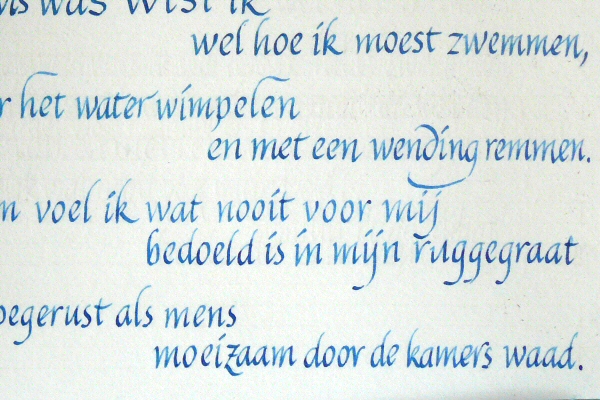 was wist ik
wel hoe ik moest zwemmen,
het water wimpelen
en met een wending remmen.
voel ik wat nooit voor mij
bedoeld is in mijn ruggegraat
als mens
moeizaam door de kamers waad.